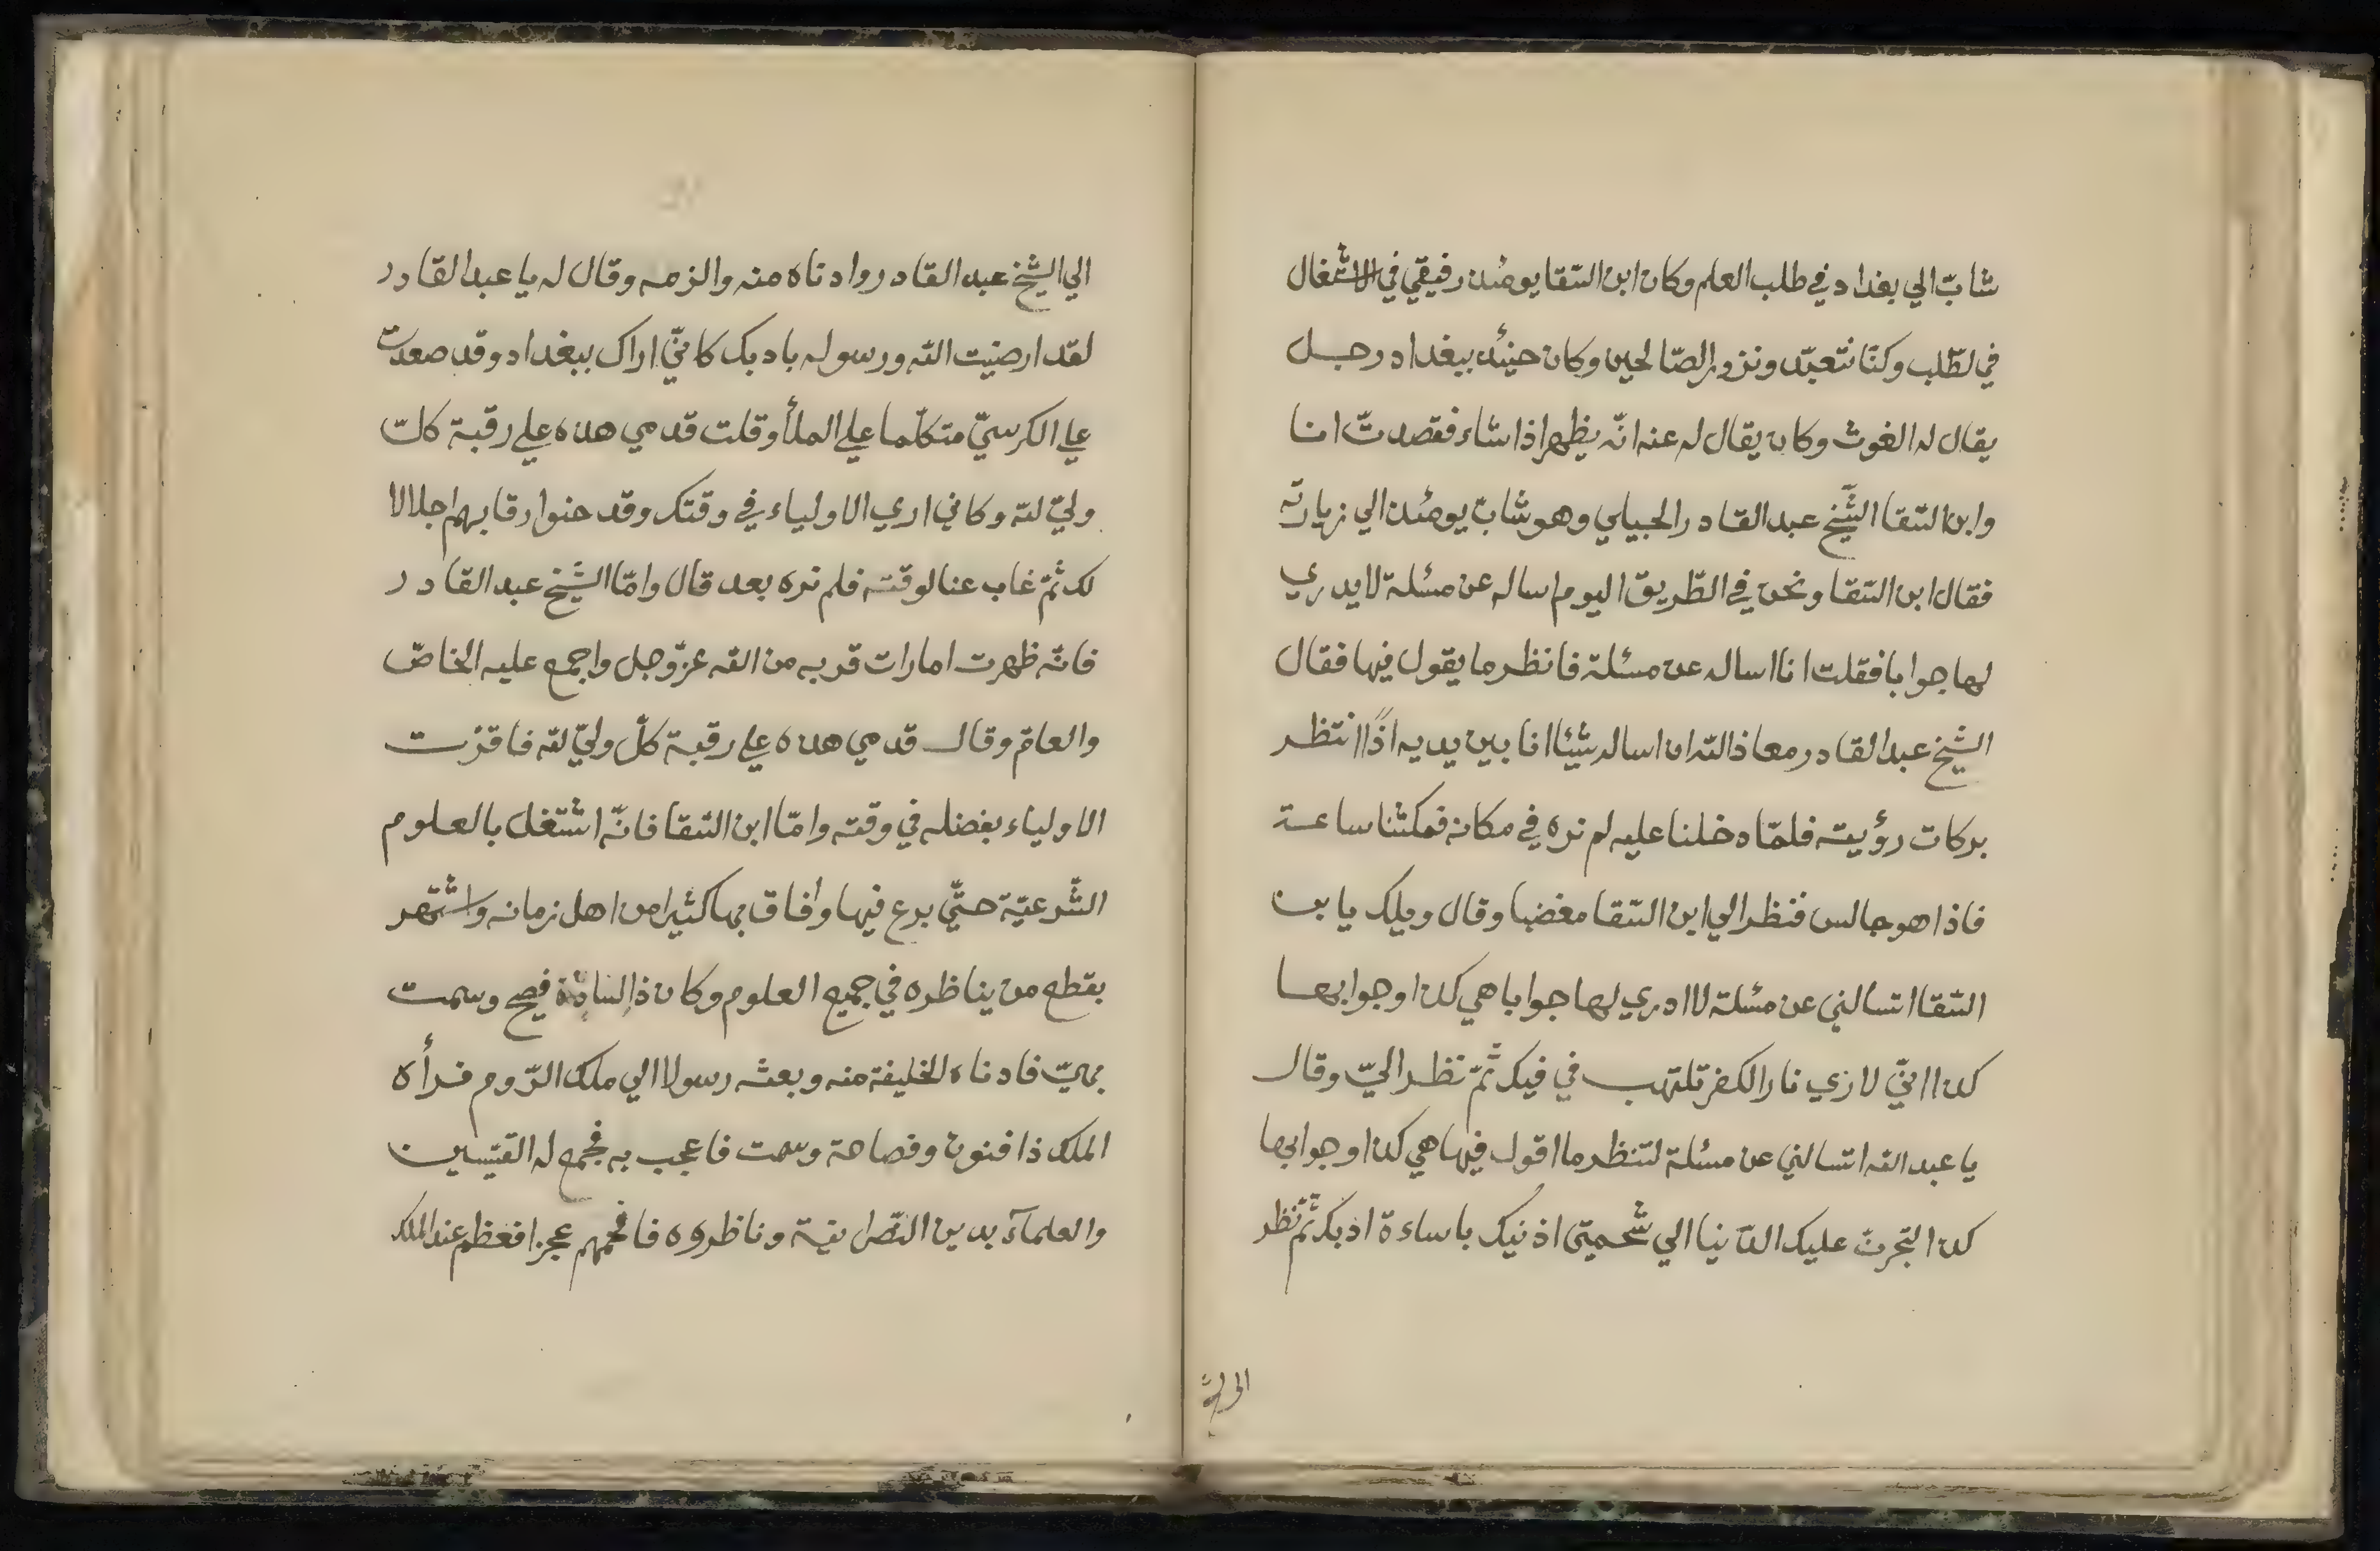 شابّ الي بغداد في طلب العلم وكان ابن السّقا يومئذ رفيقي في الاشتغال
في لطّلب وكنّا نتعبّد ونزور الصّالحين وكان حينئذ ببغداد رجل
يقال له الغوث وكان يقال له عنه انّه يظهر اذا شاء فقصدتّ انا
وابن السّقا الشّيخ عبد القادر الجيلي وهو شابّ يومئذ الي زيارته
فقال ابن السّقا ونحن في الطّريق اليوم اساله عن مسئلة لا يدري
لها جوابا فقلت انا اساله عن مسئلة فانظر ما يقول فيها فقال
الشيخ عبد القادر معاذ اللّه ان اساله شيئا انا بين يديه اذًا انتظر
بركات رؤيته فلمّا دخلنا عليه لم نره في مكانه فمكثنا ساعة
فاذا هو جالس فنظر الي ابن السّقا مغضبا وقال ويلك يا بن
السّقا اتسالني عن مسئلة لا ادري لها جوابا هي كذا وجوابها
كذا انّي لاري نار الكفر تلتهب في فيك ثمّ نظر اليّ وقال
يا عبد اللّه اتسالني عن مسئلة لتنظر ما اقول فيها هي كذا وجوابها
كذا لتجرنّ عليك الدّنيا الي شحمتي اذنيك باساءة ادبك ثمّ نظر
الي الشيخ عبد القادر وادناه منه والزمه وقال له يا عبد القادر
لقد ارضيت اللّه ورسوله بادبك كانّي اراك ببغداد وقد صعدت
علي الكرسيّ متكلّما علي الملأ وقلت قدمي هذه علي رقبة كلّ
وليّ للّه وكاني اري الاولياء في وقتك وقد حنوا رقابهم اجلالا
لك ثمّ غاب عنا لوقته فلم نره بعد قال وامّا الشّيخ عبد القادر
فانّه ظهرت امارات قربه من اللّه عزّ وجل واجمع عليه الخاصّ
والعامّ وقال قدمي هذه علي رقبة كلّ وليّ للّه فاقرّت
الاولياء بفضله في وقته وامّا ابن السّقا فانّه اشتغل بالعلوم
الشّرعيّة حتّي برع فيها وافاق بها كثيرا من اهل زمانه واشتهر
بقطع من يناظره في جميع العلوم وكان ذا لسان فصيح وسمت
بهيّ فادناه الخليفة منه وبعثه رسولا الي ملك الرّوم فرأه
الملك ذا فنون وفصاحة وسمت فاعجب به فجمع له القسّيسين
والعلمآء بدين النّصرانية وناظروه فافحمهم عجزا فعظم عند الملك